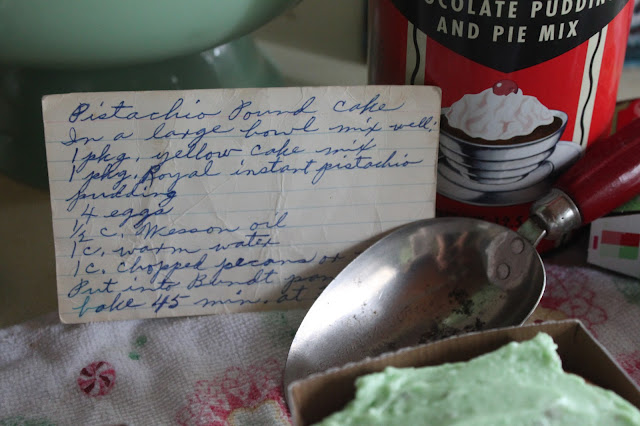 CHOCOLATE PUDDING
AND PIE MIX
Pistachio Pound Cake
In a large bowl mix well:
1 pkg. yellow cake mix
1 pkg. Royal instant pistachio
pudding
4 eggs
½ c. Wesson oil
1 c. warm water
1 c. chopped pecans or
Put into Bundt pan
bake 45 min. at